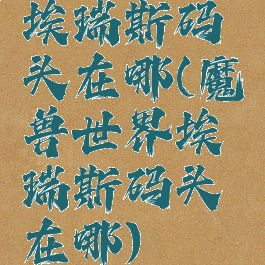 埃瑞斯码
头在哪(魔
兽世界埃
瑞斯码头
在哪)